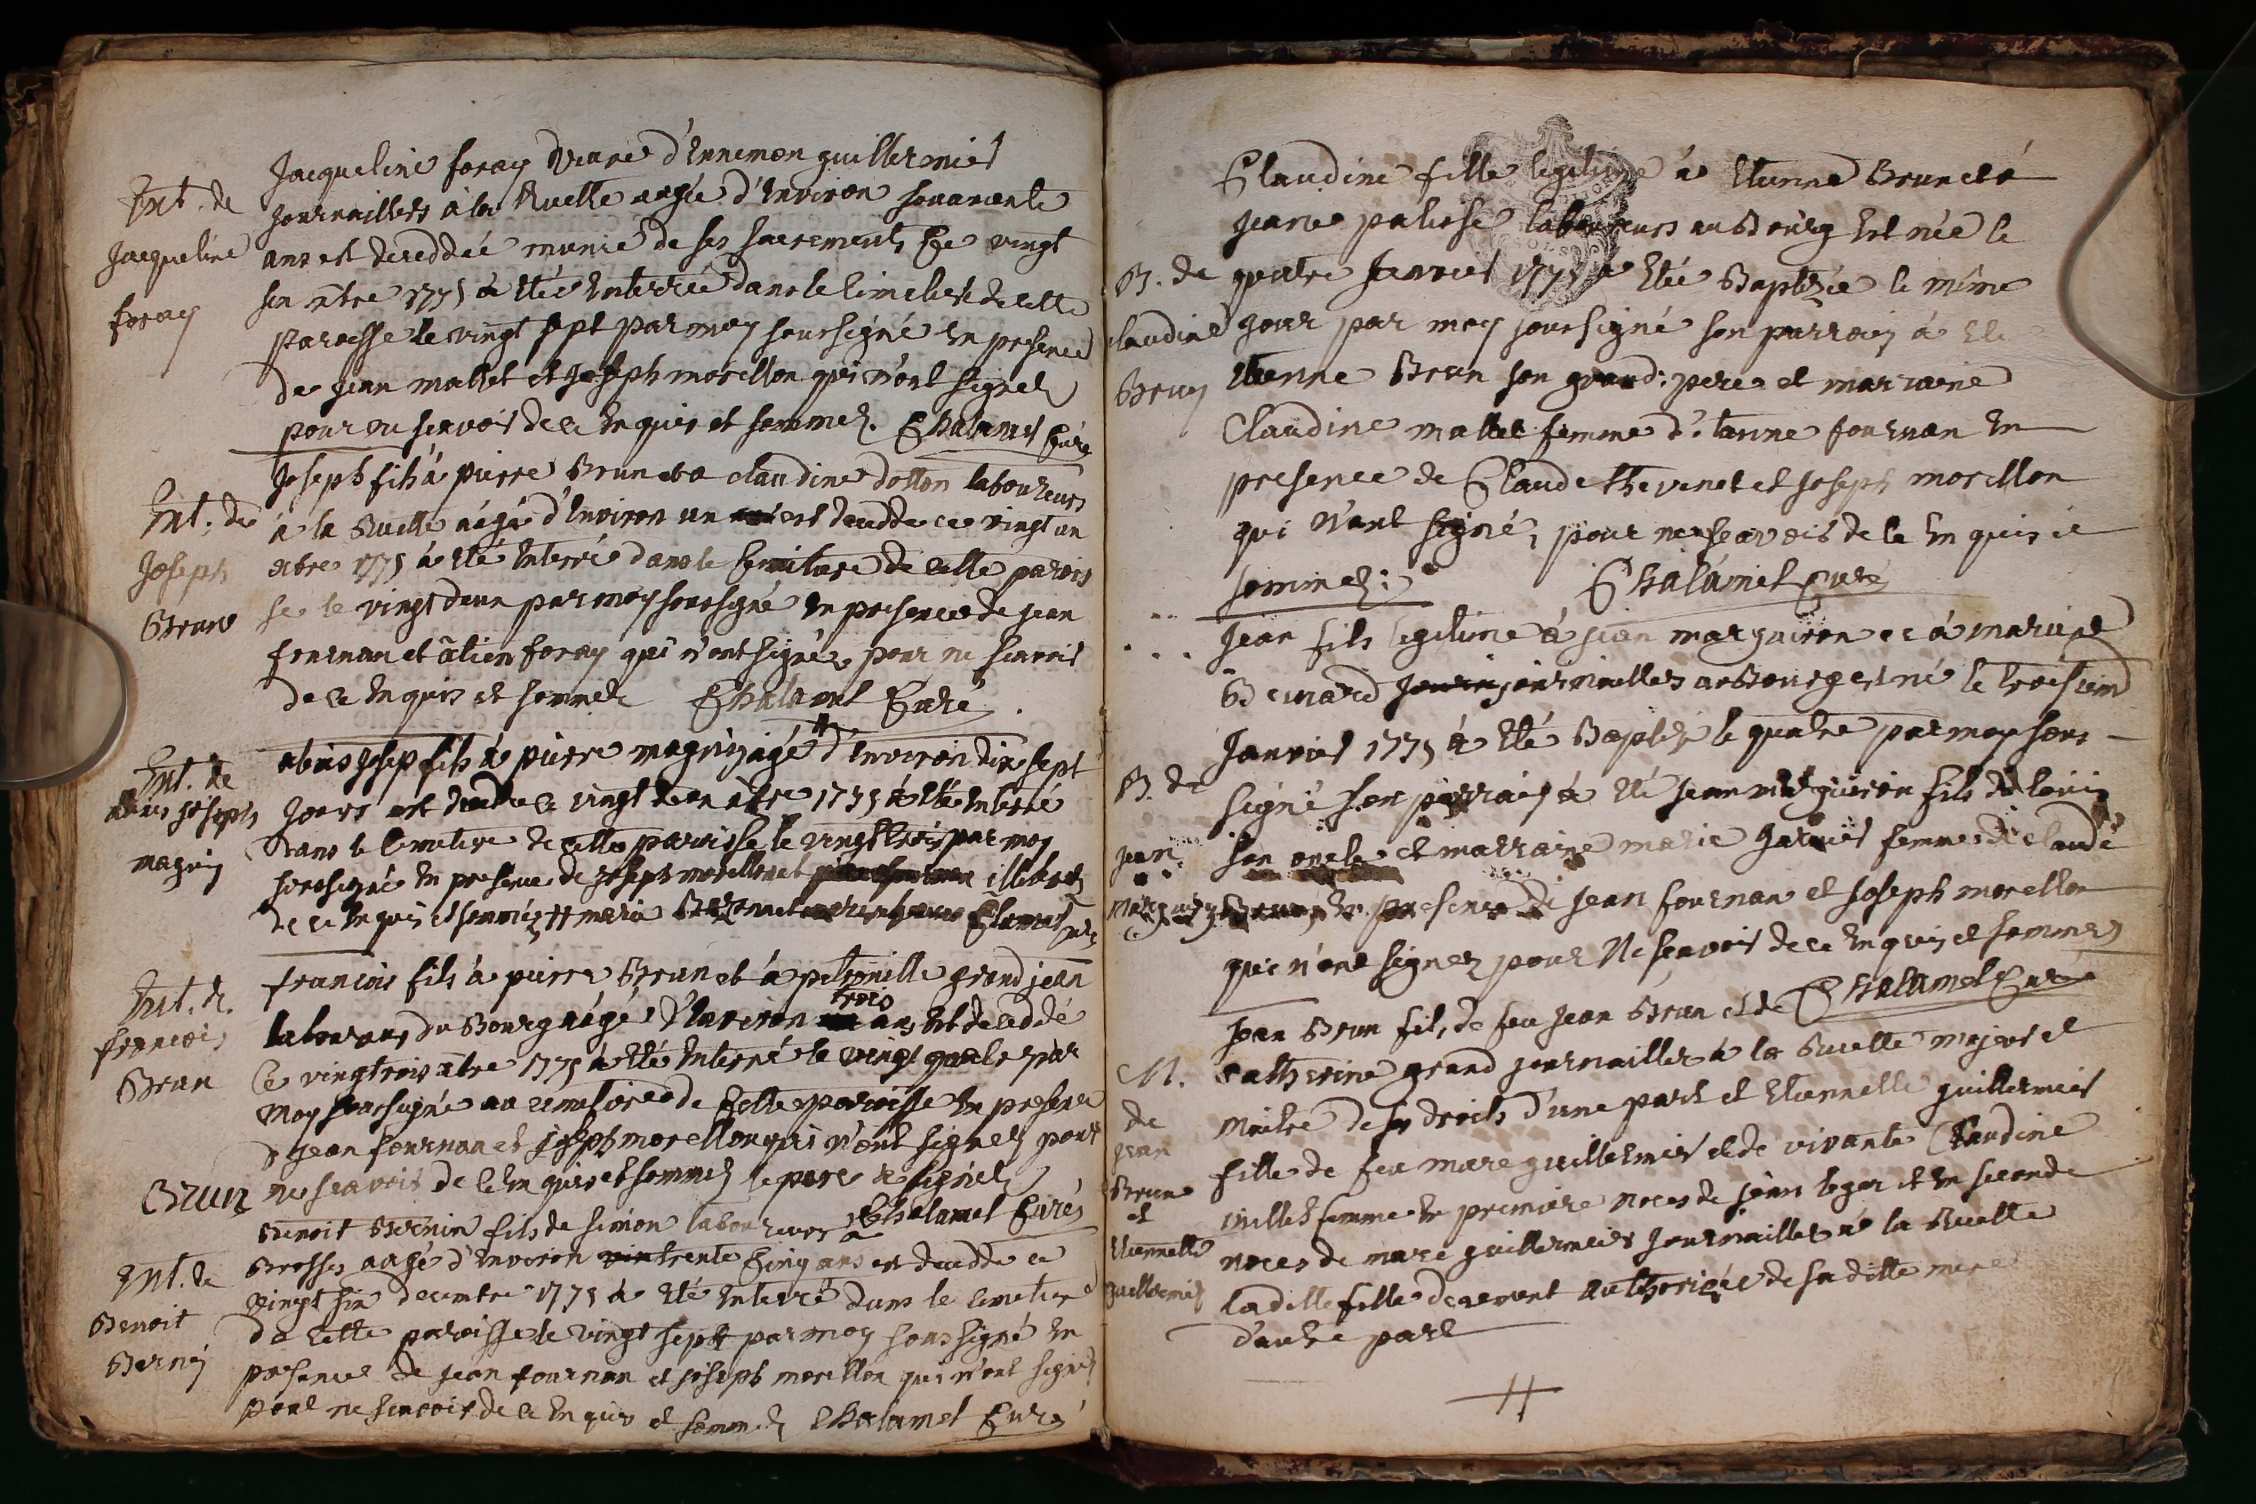 Jacqueline foray veuve d'Ennemon guillermiet
Int. de
journailliers à la Ruelle aagée d'Environ soixante
Jacqueline
ans est deceddée munie de ses sacrements Ce vingt
foray
six xbre 1775 a Eté Enterrée dans le cimetiere de cette
Paroisse le vingt sept par moy soussigné En presence
de jean mallet et Joseph morellon qui n'ont signés
pour ne scavoir de ce Enquis et sommez. Chalamel Curé
Joseph fils à pierre Brun et a claudine dotton laboureurs
Int. de
à la Ruelle aégé d'Environ un est deceddé ce vingt un
Joseph
xbre 1775 à Eté Enterré dans le Cemitiere de cette parois
Brun
se le vingt deux par moy soussigné En presence de jean
fournan et foray qui n'ont signés pour ne scavoir
de ce Enquis et sommez Chalamel Curé
Josep fils à pierre magnin agé # d'Environ dix sept
Int. de
jours est decedde ce vingt deux xbre 1775 a Eté Enterré
joseph
dans le Cemetiere de cette paroisse le vingt trois par moy
magnin
soussigné En presence de Joseph morellon et illetrés
de ce Enquis et sommés # marie Chalamel curé
francois fils à pierre Brun et à petronille grand jean
Int. de
laboureurs du Bourg aégé d'Environ trois ans Est deceddé
francois
Ce vingtrois xbre 1775 à Eté Enterré le vingt quatre par
Brun
moy soussigné au cemetiere de Cette paroisse En presence
de jean fournan et joseph morellon qui n'ont signés pour
Brun
ne scavoir de ce Enquis et sommez le pere a signéz
Chalamel Curé
Benoit Bernin fils de simon laboureurs a
Int. de
Brosses aagé d'Environ trente Cinq ans est deceddé ce
Benoit
vingt six decembre 1775 à Eté Enterré dans le Cimetiere
Bernin
de cette paroisse le vingt sept par moy soussigné En
presence de jean fournan et joseph morellon qui n'ont signéz
pour ne scavoir de ce Enquis et sommez Chalamel Curé
Claudine fille legitime à Etienne Brun et à
jeane palisse laboureurs au Bourg Est née le
B. de
quatre Janvier 1775 a Eté Baptizée le même
claudine
jour par moy soussigné son parrain à Eté
Brun
Etienne Brun son grand: pere et marraine
Claudine mallet femme d'Etienne fournan En
presence de Claude thevenet et joseph morellon
qui n'ont signé, pour ne scavoir de ce Enquis et
sommez: Chalamel Curé
Jean fils legitime à jean marguiron et à marie
Bernard journailliers au Bourg est né le troisiem
janvier 1775 à Eté Baptizé le quatre par moy sous
B. de
signé son parrain à Eté jean marguiron fils de louis
jean
son oncle et marraine marie femme de Claude
En presence de jean fournan et joseph morellon
qui n'ont signez pour Ne scavoir de ce Enquis et sommez
Chalamel Curé
jean Brun fils de feu jean Brun et de
M.
catherine grand journaillier à la Ruelle majeur et
de
maitre de ses droits d'une part et Etiennette guillermier
jean
fille de feu marc guillermier et de vivante Claudine
Brun
millet femme En premiere noces de jean leger et En seconde
et
noces de marc guillermier journaillier à la Ruelle
Etiennette
ladille fille deuement authorizée de sa ditte mere
guillermier
d'autre part
#